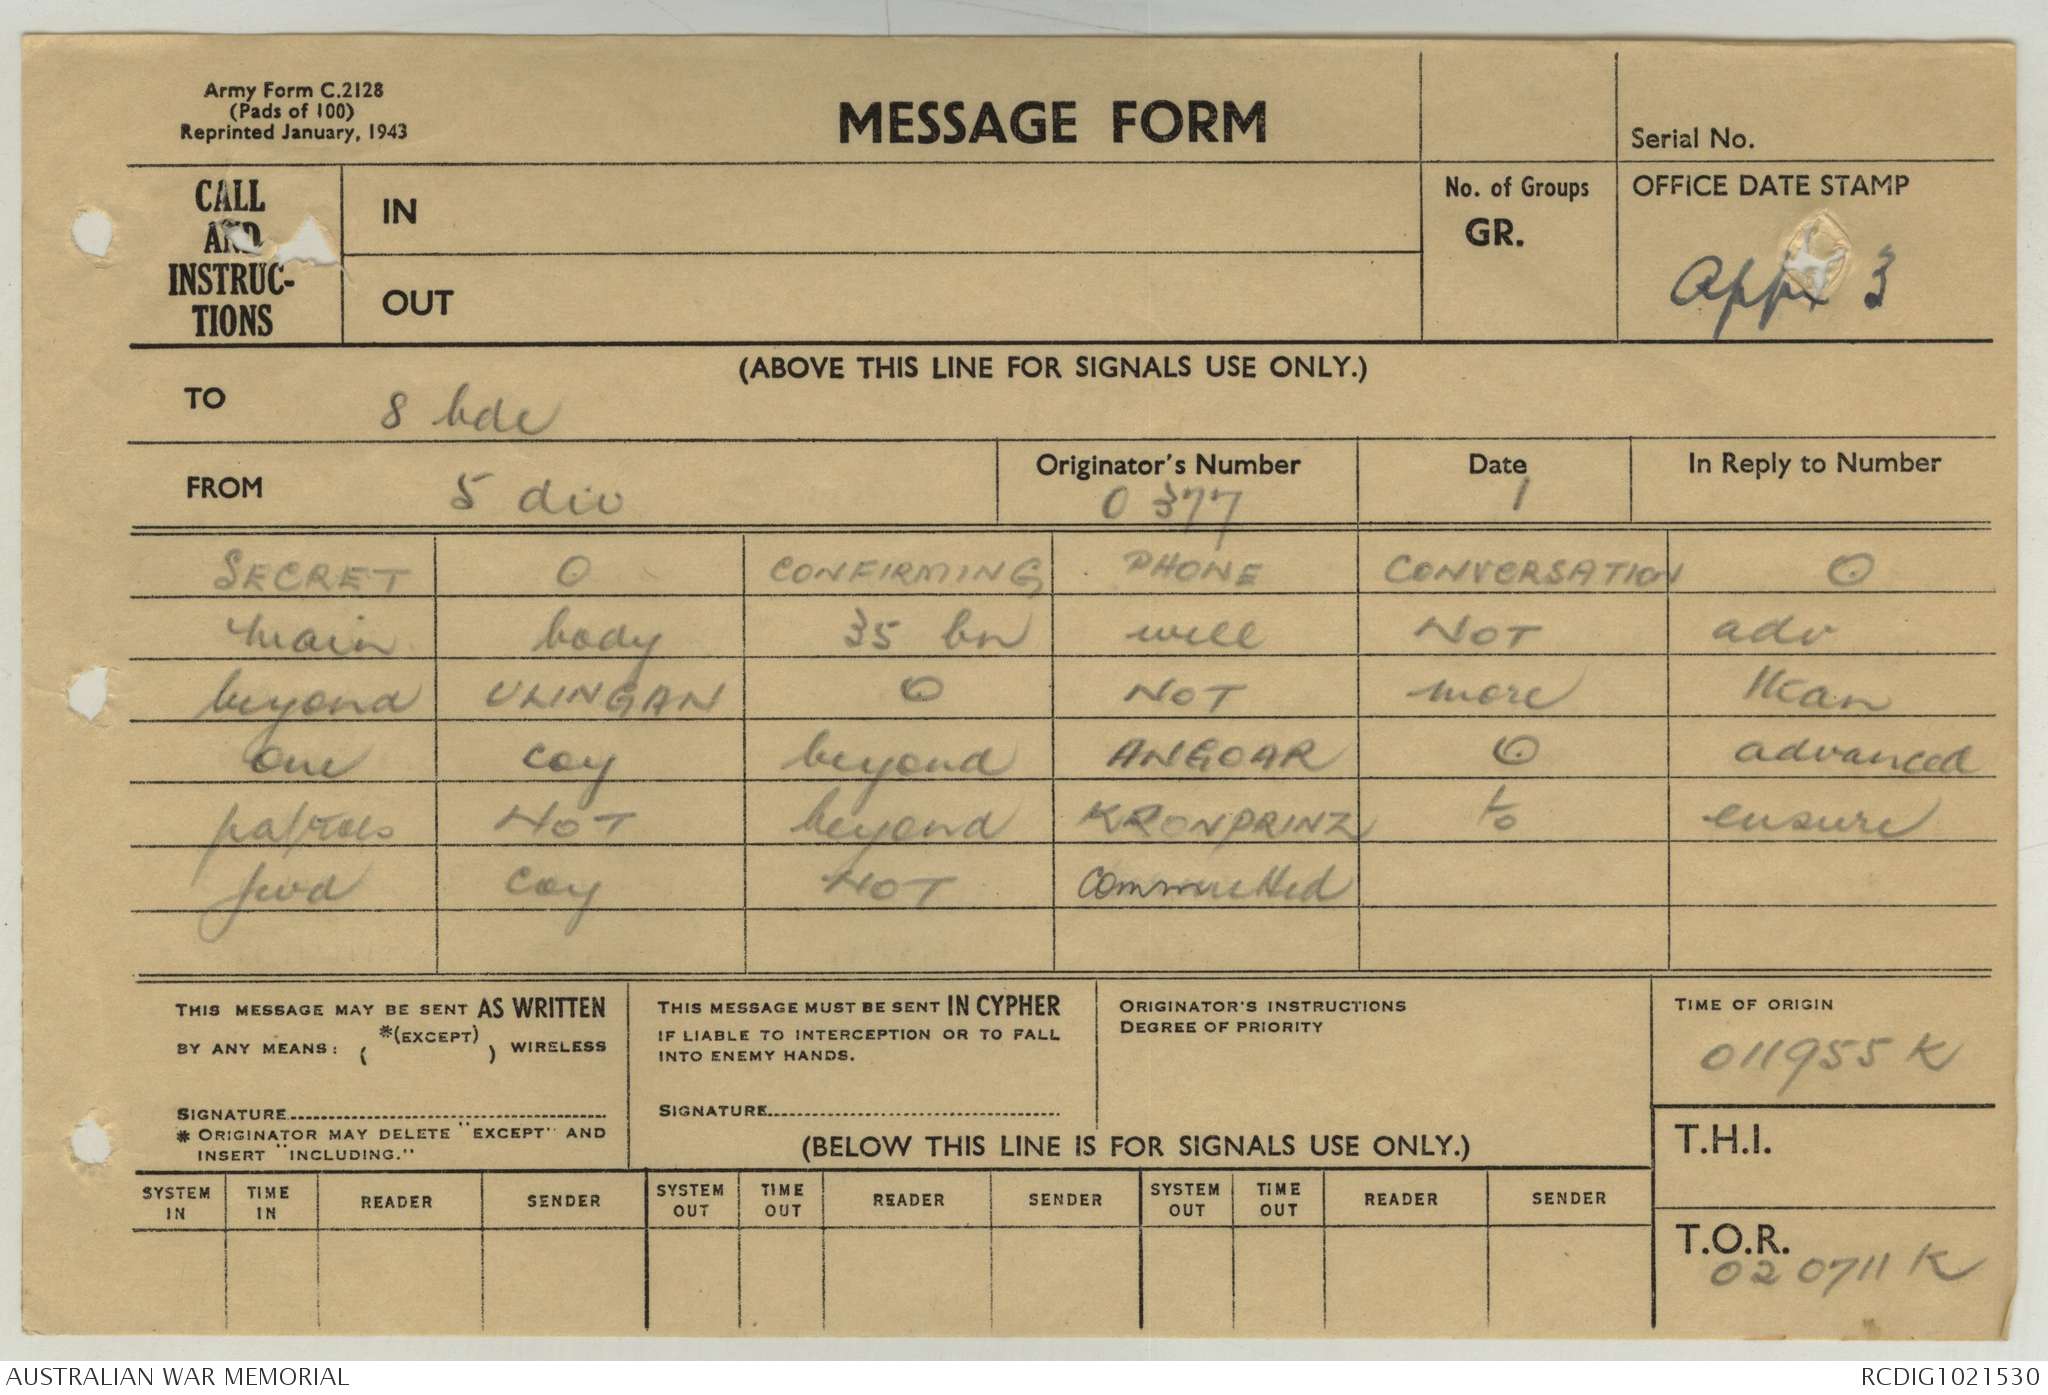 Army Form C.2128
(Pads of 100)
Reprinted January, 1943
MESSAGE FORM
Serial No.
CALL AND INSTRUC-TIONS
IN
OUT
No. of Groups
GR.
OFFICE DATE STAMP
Appx 3
(ABOVE THIS LINE FOR SIGNALS USE ONLY.)
TO 8 bde
FROM 5 div
Originator's Number
0377
Date
1
In Reply to Number
SECRET ⊙ CONFIRMING PHONE CONVERSATION ⊙
main body 35 bn will NOT adv
beyond ULINGAN ⊙ NOT more than
one coy beyond ANGOAR ⊙ advanced
patrols NOT beyond KRONPRINZ ⊙ ensure
fwd coy NOT committed
THIS MESSAGE MAY BE SENT AS WRITTEN
BY ANY MEANS: ( *(EXCEPT) ) WIRELESS
SIGNATURE
* ORIGINATOR MAY DELETE "EXCEPT" AND
INSERT "INCLUDING."
THIS MESSAGE MUST BE SENT IN CYPHER
IF LIABLE TO INTERCEPTION OR TO FALL
INTO ENEMY HANDS.
SIGNATURE
ORIGINATOR'S INSTRUCTIONS
DEGREE OF PRIORITY
TIME OF ORIGIN
011955 K
(BELOW THIS LINE IS FOR SIGNALS USE ONLY.)
T.H.I.
SYSTEM IN TIME IN READER SENDER SYSTEM OUT TIME OUT READER SENDER SYSTEM OUT TIME OUT READER SENDER
T.O.R.
020711 K
AUSTRALIAN WAR MEMORIAL
RCDIG1021530